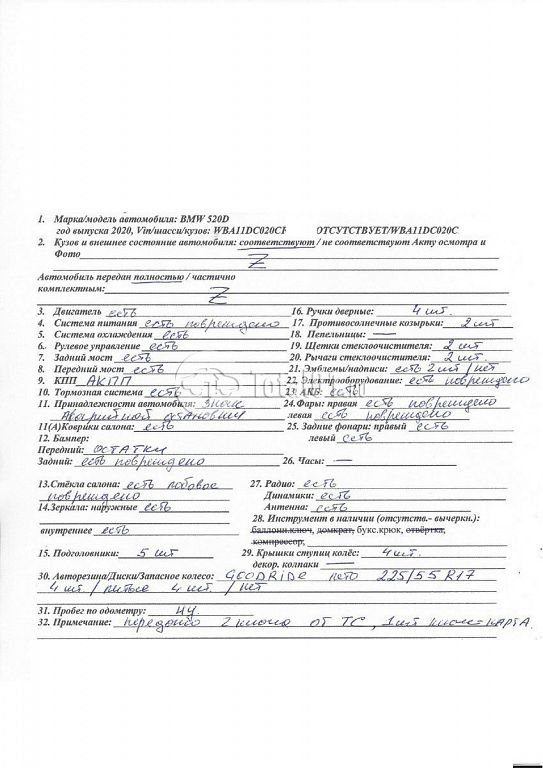 1. Марка/модель автомобиля: BMW 520D
год выпуска 2020, Vin/шасси/кузов: WBA11DC020CF ОТСУТСТВУЕТ/WBA11DC020C
2. Кузов и внешнее состояние автомобиля: соответствуют / не соответствуют Акту осмотра и
Фото Z
Автомобиль передан полностью / частично
комплектным: Z
3. Двигатель есть 16. Ручки дверные: 4 шт.
4. Система питания есть повреждено 17. Противосолнечные козырьки: 2 шт
5. Система охлаждения есть 18. Пепельницы: —
6. Рулевое управление есть 19. Щетки стеклоочистителя: 2 шт
7. Задний мост есть 20. Рычаги стеклоочистителя: 2 шт.
8. Передний мост есть 21. Эмблемы/надписи: есть 2 шт / нет
9. КПП АКПП 22. Электрооборудование: есть повреждено
10. Тормозная система есть 23. АКБ: есть
11. Принадлежности автомобиля: знак 24. Фары: правая есть повреждено
аварийной остановки левая есть повреждено
11(А)Коврики салона: есть 25. Задние фонари: правый есть
12. Бампер: левый есть
Передний: остатки
Задний: есть повреждено 26. Часы: —
13.Стёкла салона: есть лобовое 27. Радио: есть
повреждено Динамики: есть
14.Зеркала: наружные есть Антенна: есть
28. Инструмент в наличии (отсутств.- вычеркн.):
внутреннее есть баллонн.ключ, домкрат, букс.крюк, отвёртка,
компрессор,
15. Подголовники: 5 шт 29. Крышки ступиц колёс: 4 шт.
декор. колпаки —
30. Авторезина/Диски/Запасное колесо: GOODRIDE лето 225/55 R17
4 шт. / литые 4 шт. / нет
31. Пробег по одометру: НУ.
32. Примечание: передано 2 ключа от ТС, 1 шт ключ=карта.